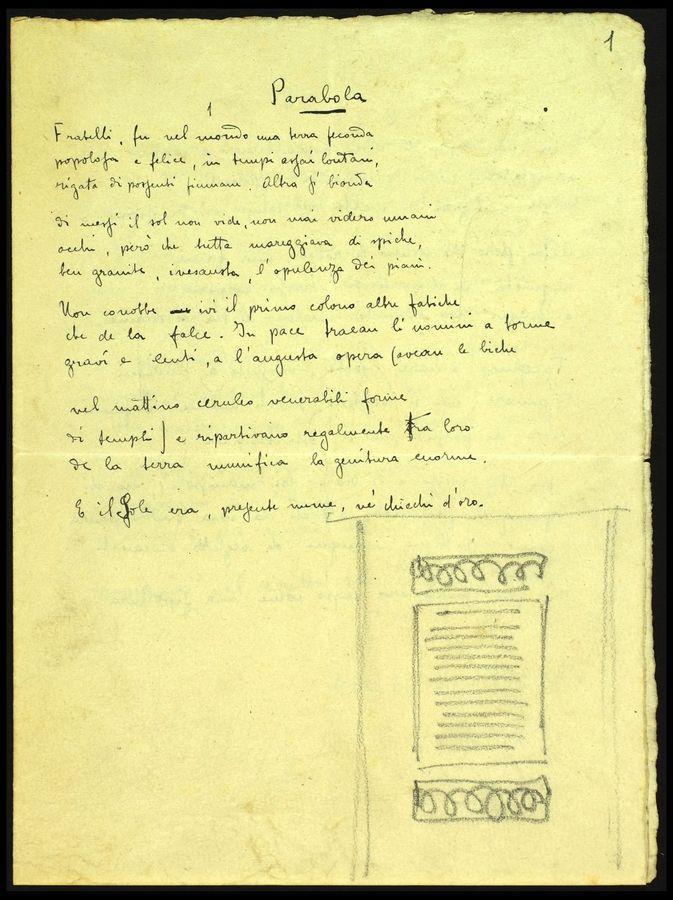 1
Parabola
1
Fratelli, fu nel mondo una terra feconda
popolosa e felice, in tempi assai lontani,
rigata di possenti fiumane. Altra sì bionda
di messi il sol non vide, non mai videro umani
occhi, però che tutta mareggiava di spiche,
ben granite, inesausta, l'opulenza dei piani.
Non conobbe ivi il primo colono altre fatiche
che de la falce. In pace traean li uomini a torme
gravi e lenti, a l'augusta opera (avean le biche
nel mattino ceruleo venerabili forme
di templi) e ripartivano regalmente tra loro
de la terra munifica la genitura enorme.
E il Sole era, presente nume, ne' chicchi d'oro.